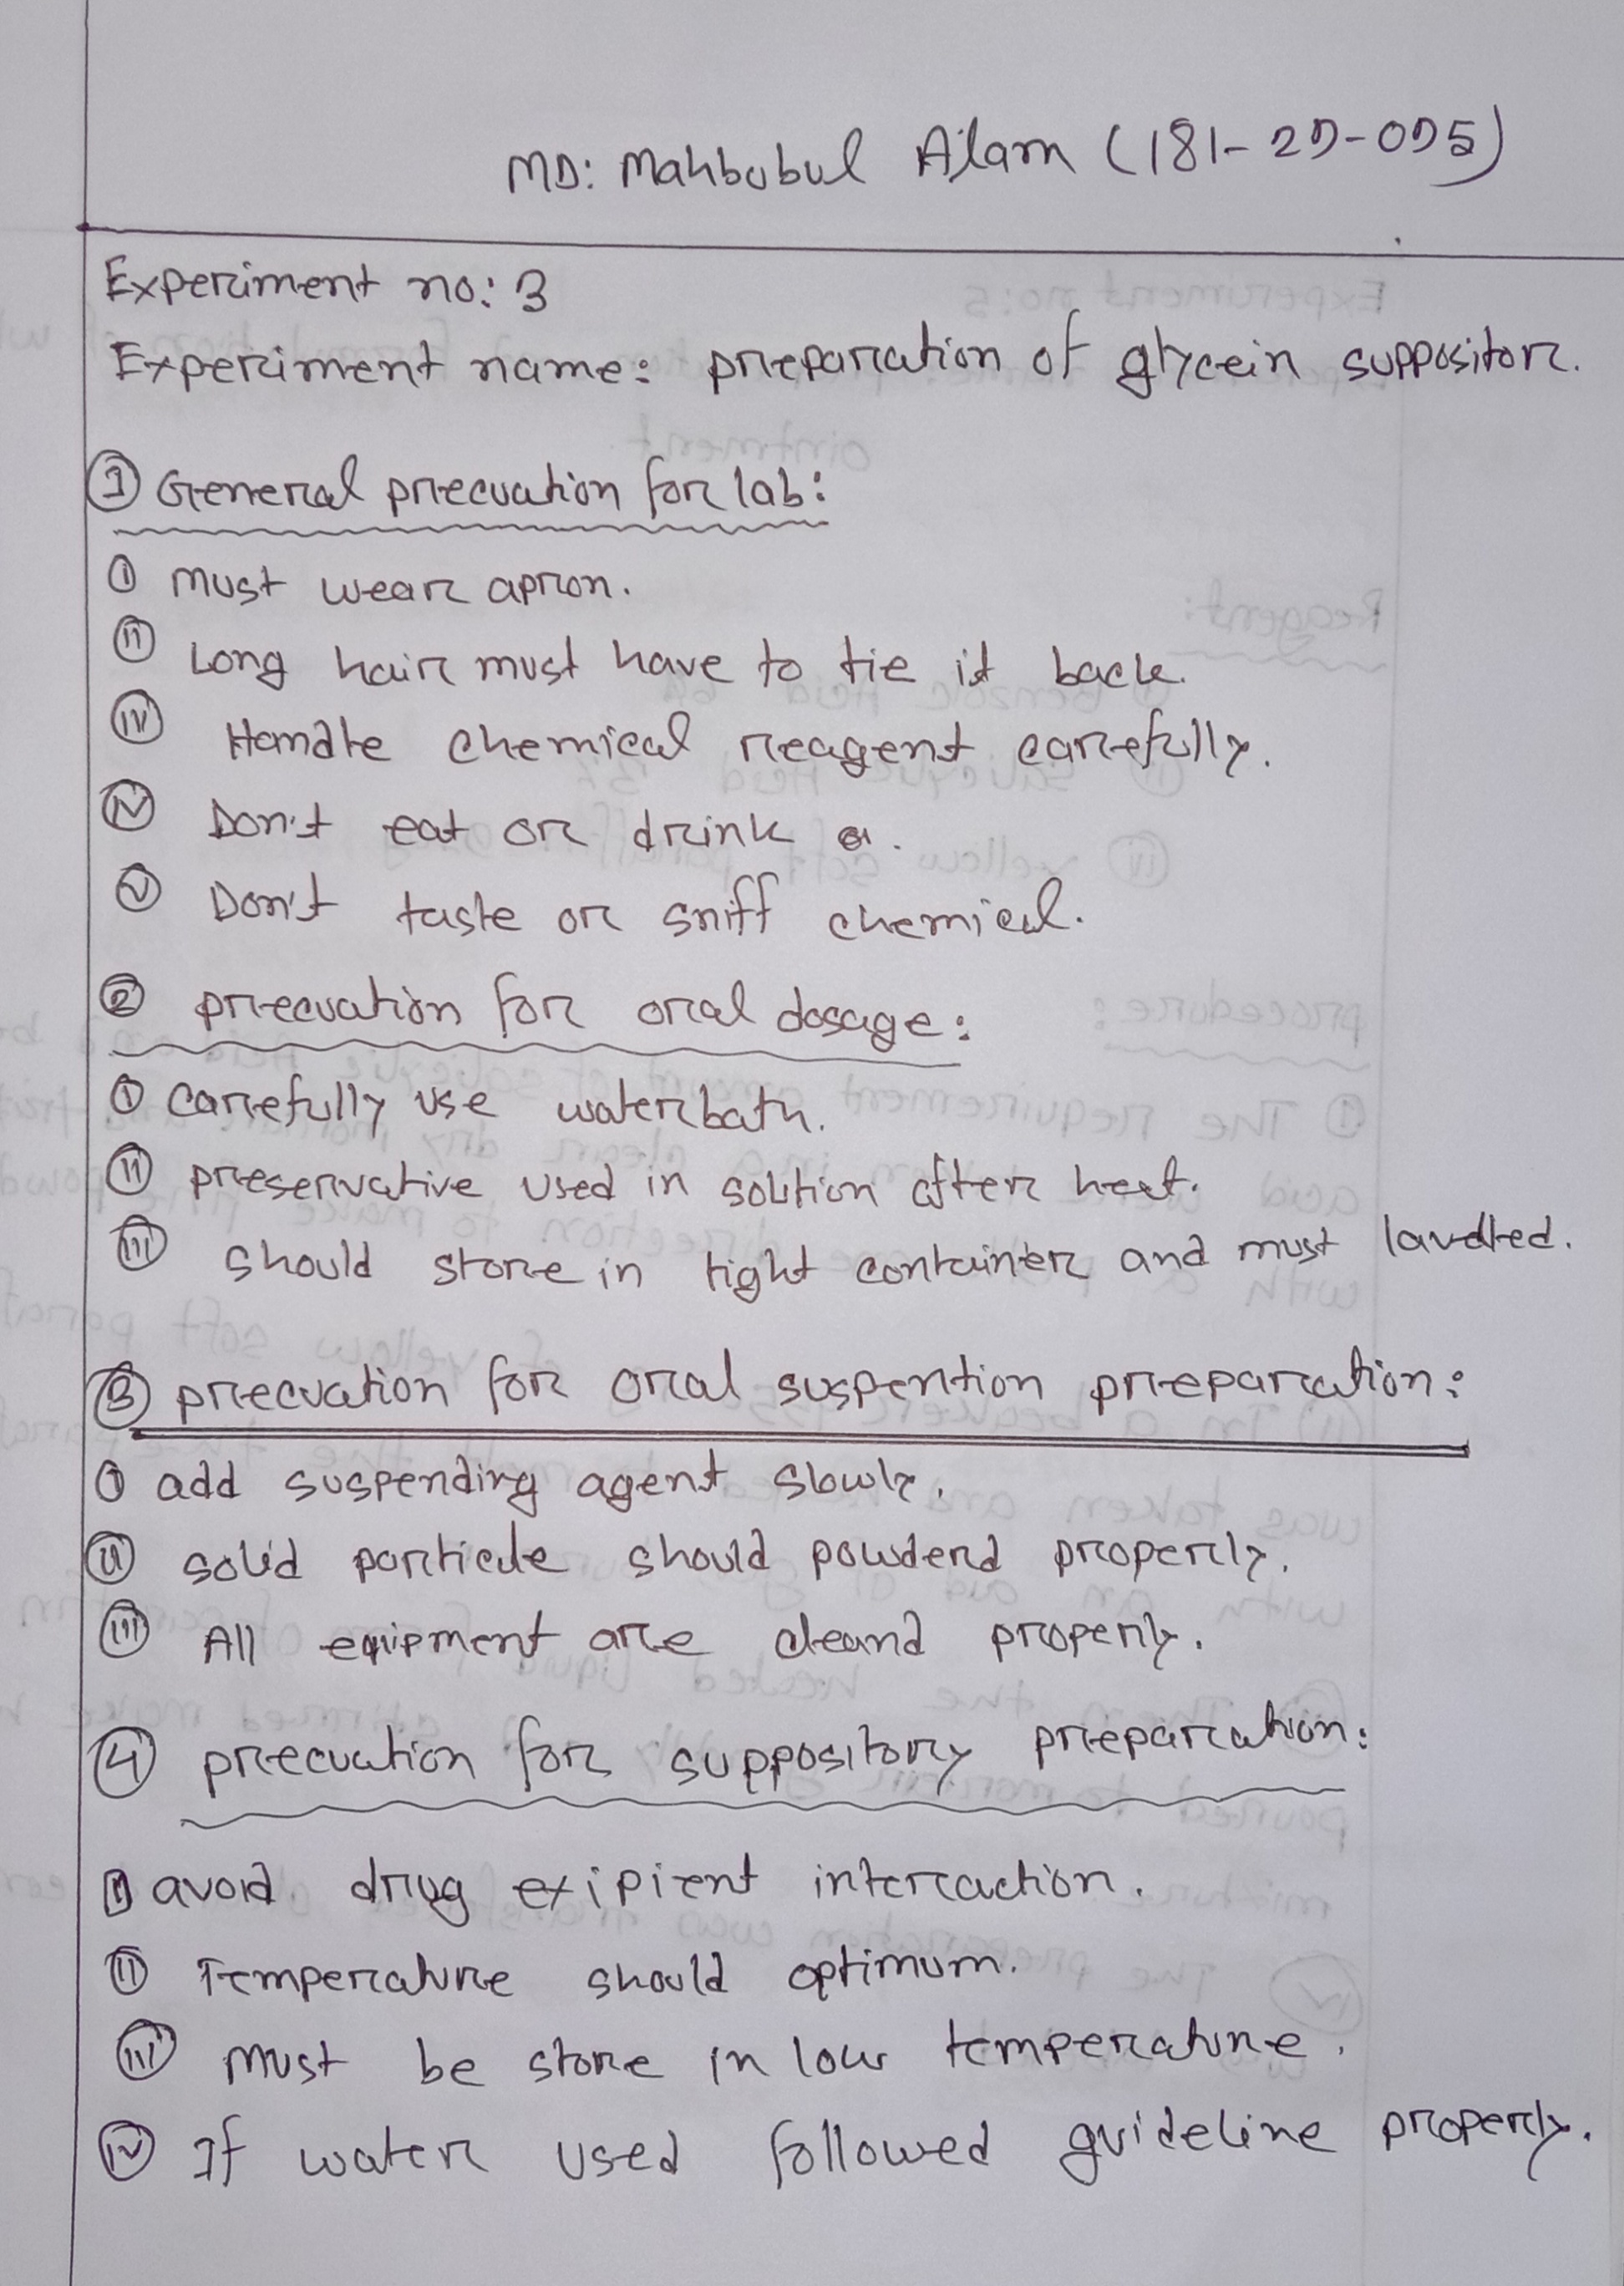 MD: Mahbubul Alam (181-29-005)
Experiment no: 3
Experiment name: preparation of glycein suppositor.
① General precuation for lab:
ⓘ must wear apron.
ⓘⓘ Long hair must have to tie it back.
ⓘⓥ Handle chemical reagent carefully.
ⓘⓥ Don't eat or drink
ⓥ Don't taste or sniff chemical.
② precuation for oral dosage:
ⓘ carefully use waterbath.
ⓘⓘ preservative used in solution after heat.
ⓘⓘⓘ should store in tight container and must
③ precuation for oral suspention preparation:
ⓘ add suspending agent slowly.
ⓘⓘ solid particle should powderd properly.
ⓘⓘⓘ All equipment are cleand properly.
④ precuation for suppository preparation:
ⓘ avoid drug exipient interaction.
ⓘⓘ Temperature should optimum.
ⓘⓘⓘ must be store in low temperature.
ⓘⓥ If water used followed guideline properly.